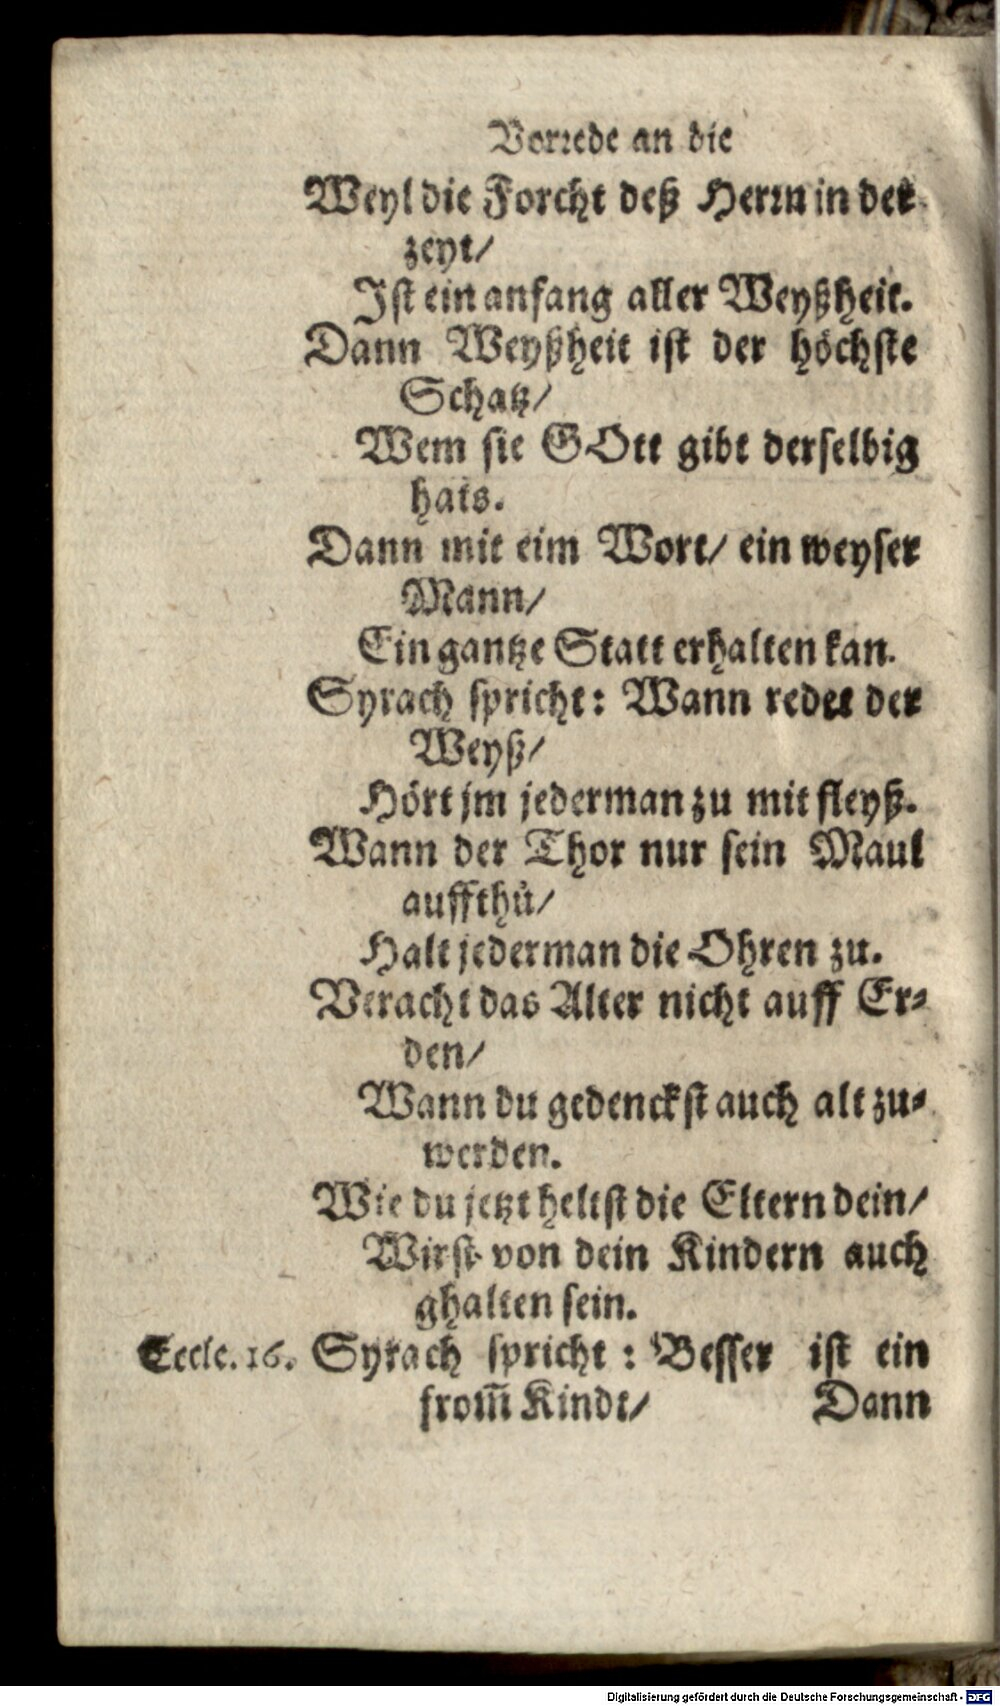 Vorrede an die
Weyl die Forcht deß Herrn in der
zeyt/
Ist ein anfang aller Weyßheit.
Dann Weyßheit ist der höchste
Schatz/
Wem sie GOtt gibt derselbig
hats.
Dann mit eim Wort/ ein weyser
Mann/
Ein gantze Statt erhalten kan.
Syrach spricht: Wann redet der
Weyß/
Hört jm jederman zu mit fleyß.
Wann der Thor nur sein Maul
auffthů/
Halt jederman die Ohren zu.
Veracht das Alter nicht auff Er⸗
den/
Wann du gedenckst auch alt zu⸗
werden.
Wie du jetzt heltst die Eltern dein/
Wirst von dein Kindern auch
ghalten sein.
Eccle. 16. Syrach spricht: Besser ist ein
from̃ Kindt/ Dann
Digitalisierung gefördert durch die Deutsche Forschungsgemeinschaft - DFG